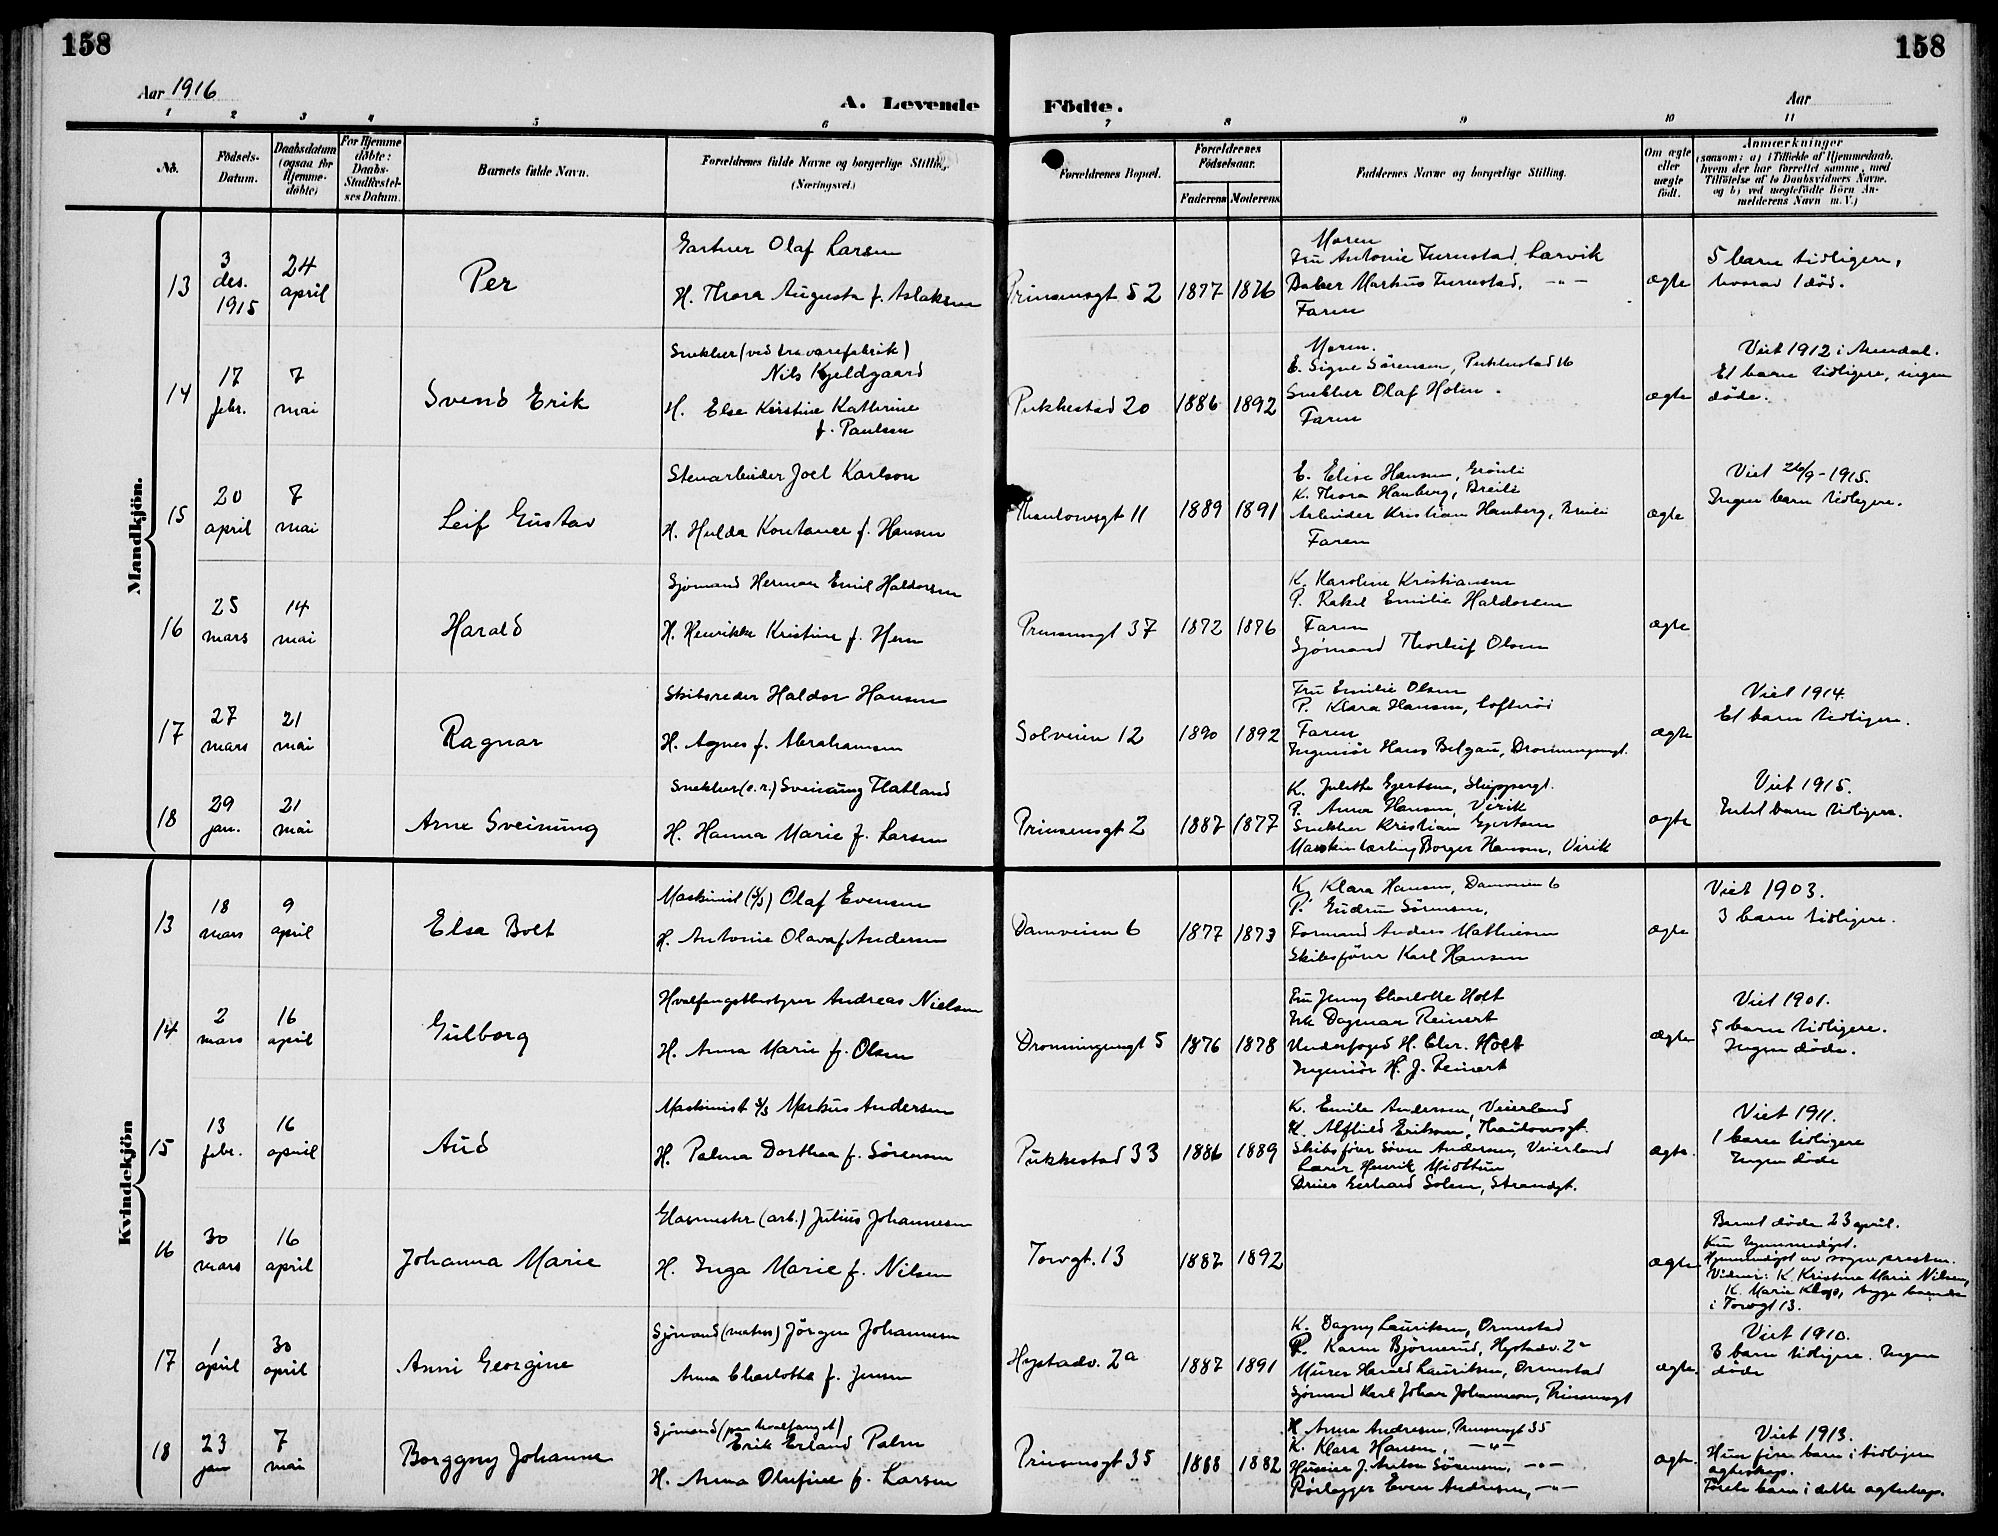 158
158
Aar 1916
A. Levende Födte.
Aar
1 2 3 4 5 6 7 8 9 10 11
No.
Födsels-Datum.
Daabsdatum (ogsaa for Hjemme-døbte)
For Hjemme døbte: Daabs-Stadfæstel-ses Datum.
Barnets fulde Navn.
Forældrenes fulde Navne og borgerlige Stilling (Næringsvei.)
Forældrenes Bopæl.
Forældrenes Födselsaar.
Faderens Moderens
Faddernes Navne og borgerlige Stilling.
Om ægte eller uægte født.
Anmærkninger
(saasom: a) i Tilfælde af Hjemmedaab, hvem der har forrettet samme, med Tilføielse af to Daabsvidners Navne, og b) ved uægtefødte Börn An-melderens Navn m. V.)
Mandkjön.
13
3 des. 1915
24 april
Per
Gartner Olaf Larsen
H. Thora Augusta f. Aslaksen
Prinsensgt 52
1877 1876
Moren
Fru Antonie Furustad, Larvik
Baker Markus Furustad, -"-
Faren
ægte
5 barn tidligere, hvorav 1 død.
14
17 febr.
7 mai
Svend Erik
Snekker (ved trævarefabrik)
Nils Kjeldgaard
H. Else Kirstine Kathrine
f. Paulsen
Pukkestad 20
1886 1892
Moren.
E. Signe Sørensen, Pukkestad 16
Snekker Olaf Holm
Faren
ægte
Viet 1912 i Arendal.
Et barn tidligere, ingen døde.
15
20 april
7 mai
Leif Gustav
Stenarbeider Joel Karlson
H. Hulda Konstance f. Hansen
Thaulowsgt 11
1889 1891
E. Elise Hansen, Grönli
K. Thora Hamberg, Breili
Arbeider Kristian Hamberg, Breili
Faren
ægte
Viet 26/9 - 1915.
Ingen barn tidligere.
16
25 mars
14 mai
Harald
Sjömand Herman Emil Haldorsen
H. Henrikke Kristine f. Hem
Prinsensgt 37
1872 1876
K. Karoline Kristiansen
P. Rakel Emilie Haldorsen
Faren
Sjömand Thorleif Olsen
ægte
17
27 mars
21 mai
Ragnar
Skibsreder Haldor Hansen
H. Agnes f. Abrahamsen
Solveien 12
1890 1892
Fru Emilie Olsen
P. Klara Hansen, Lofterød
Faren
Ingeniör Hans Belgau, Dronningensgt.
ægte
Viet 1914.
Et barn tidligere.
18
29 jan.
21 mai
Arne Sveinung
Snekker (e.r.) Sveinung Flatland
H. Hanna Marie f. Larsen
Prinsensgt 2
1887 1877
K. Julette Gjertsen, Skippergt.
P. Anna Hansen, Virik
Snekker Kristian Gjertsen
Maskinlærling Borger Hansen, Virik
ægte
Viet 1915.
Intet barn tidligere.
Kvindekjön
13
18 mars
9 april
Elsa Bolt
Maskinist (s/s) Olaf Evensen
H. Antonie Olava f. Andersen
Damveien 6
1877 1873
K. Klara Hansen, Damveien 6
P. Gudrun Sørensen,
Formand Anders Mathiesen
Skibsfører Karl Hansen
ægte
Viet 1903.
3 barn tidligere.
14
2 mars
16 april
Gulborg
Hvalfangstbestyrer Andreas Nielsen
H. Anna Marie f. Olsen
Dronningensgt 5
1876 1878
Fru Jenny Charlotte Holt
Frk Dagmar Reinert
Underfoged H. Chr. Holt
Ingeniör H. J. Reinert
ægte
Viet 1901.
5 barn tidligere.
Ingen døde.
15
13 febr.
16 april
Aud
Maskinist s/s Markus Andersen
H. Palma Dorthea f. Sørensen
Pukkestad 33
1886 1889
K. Emilie Andersen, Veierland
K. Alfhild Eriksen, Thaulowsgt.
Skibsfører Sören Andersen, Veierland
Lærer Henrik Midttun
Dreier Gerhard Solem, Strandgt.
ægte.
Viet 1911.
1 barn tidligere
Ingen døde
16
30 mars
16 april
Johanna Marie
Glasmester (arb.) Julius Johannesen
H. Inga Marie f. Nilsen
Torvgt. 13
1887 1892
ægte
Barnet døde 23 april.
Kun hjemmedøpt.
Hjemmedøpt av sognepresten.
Vidner: K. Kristine Marie Nilsen,
K. Marie Klop, begge boende
i Torvgt 13.
17
1 april
30 april
Anni Georgine
Sjömand (matros) Jörgen Johannesen
Anna Charlotte f. Jensen
Hystadv. 2a
1887 1891
K. Dagny Lauritsen, Ormestad
P. Karen Bjørnerud, Hystadv. 2a
Murer Harald Lauritsen, Ormestad
Sjömand Karl Johan Johannesen, Prinsensgt
ægte.
Viet 1910.
3 barn tidligere. Ingen døde
18
23 jan
7 mai
Borggny Johanne
Sjömand (paa hvalfangst)
Erik Erland Palm
H. Anna Olufine f. Larsen
Prinsensgt 35
1888 1882
H. Anna Andresen, Prinsensgt 35
K. Klara Hansen, -"-
Huseier J. Anton Sørensen, -"-
Rørlægger Even Andresen, -"-
ægte.
Viet 1913.
Hun fire barn i tidligere ægteskap.
Første barn i dette ægteskap.